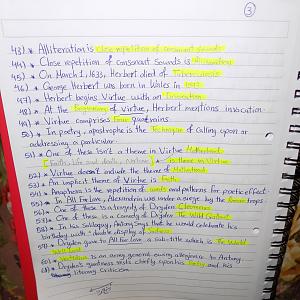 3
43) * Alliteration is close repetition of consonant sounds
44) * Close repetition of consonant sounds is alliteration
45) * On March 1, 1633, Herbert died of Tuberculosis
46) * George Herbert was born in Wales in 1593
47) * Herbert begins Virtue with an Invocation
48) * At the Beginning of Virtue, Herbert mentions invocation
49) * Virtue comprises Four quatrains
50) * In poetry, apostrophe is the Technique of calling upon or
addressing a particular
51) * One of these isn't a theme in Virtue Motherhood
[Faith, life and death, Virtue] * is theme in Virtue
52) * Virtue doesn't include the theme of Motherhood
53) * An implicit theme of Virtue is Faith
54) * Anaphora is the repetition of words and patterns for poetic effect
55) * In All For Love, Alexandria was under siege by the Roman troops
56) * One of these is a tragedy of Dryden Cleomenes
57) * One of these is a Comedy of Dryden The Wild Gallant
58) * In his Soliloquy, Antony said that he would celebrate his
birthday with double display of Sadness
59) * Dryden gave to All For Love a sub-title which is The World
Well Lost
60) * Ventidius is an army general owing allegiance to Antony
61) * Dryden's goodness rests chiefly upon his Poetry and his
literary criticism